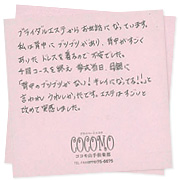 ブライダルエステからお世話になっています。
私は背中にブツブツがあり、背中が大きく
あいたドレスを着るので不安でした。
十回コースを終え 挙式当日、母親に
「背中のブツブツがない！キレイになってる！！」と
言われ うれしかったです。エステはすごいと
改めて実感しました。
COCOMO
ココモ山手指南館